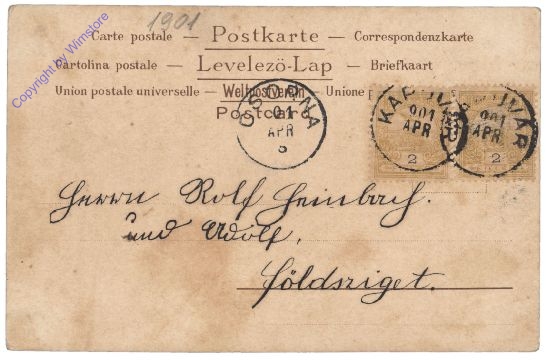 1901
Carte postale — Postkarte — Correspondenzkarte
Cartolina postale — Levelező-Lap — Briefkaart
Union postale universelle — Weltpostverein — Unione
Postcard
CSORNA
901
APR
5
KAPUVÁR
901
APR
2
KAPUVÁR
901
APR
2
Herrn Rolf Heinbach.
und Adolf,
Földsziget.
Copyright by Wimstore